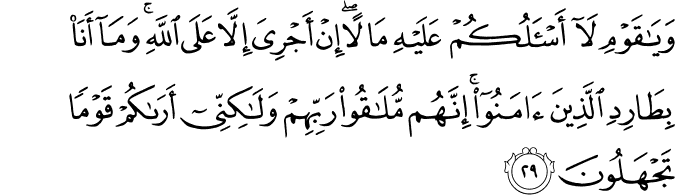 وَيَٰقَوۡمِ لَآ أَسۡـَٔلُكُمۡ عَلَيۡهِ مَالًاۖ إِنۡ أَجۡرِيَ إِلَّا عَلَى ٱللَّهِۚ وَمَآ أَنَا۠
بِطَارِدِ ٱلَّذِينَ ءَامَنُوٓاْۚ إِنَّهُم مُّلَٰقُواْ رَبِّهِمۡ وَلَٰكِنِّيٓ أَرَىٰكُمۡ قَوۡمٗا
تَجۡهَلُونَ ٢٩